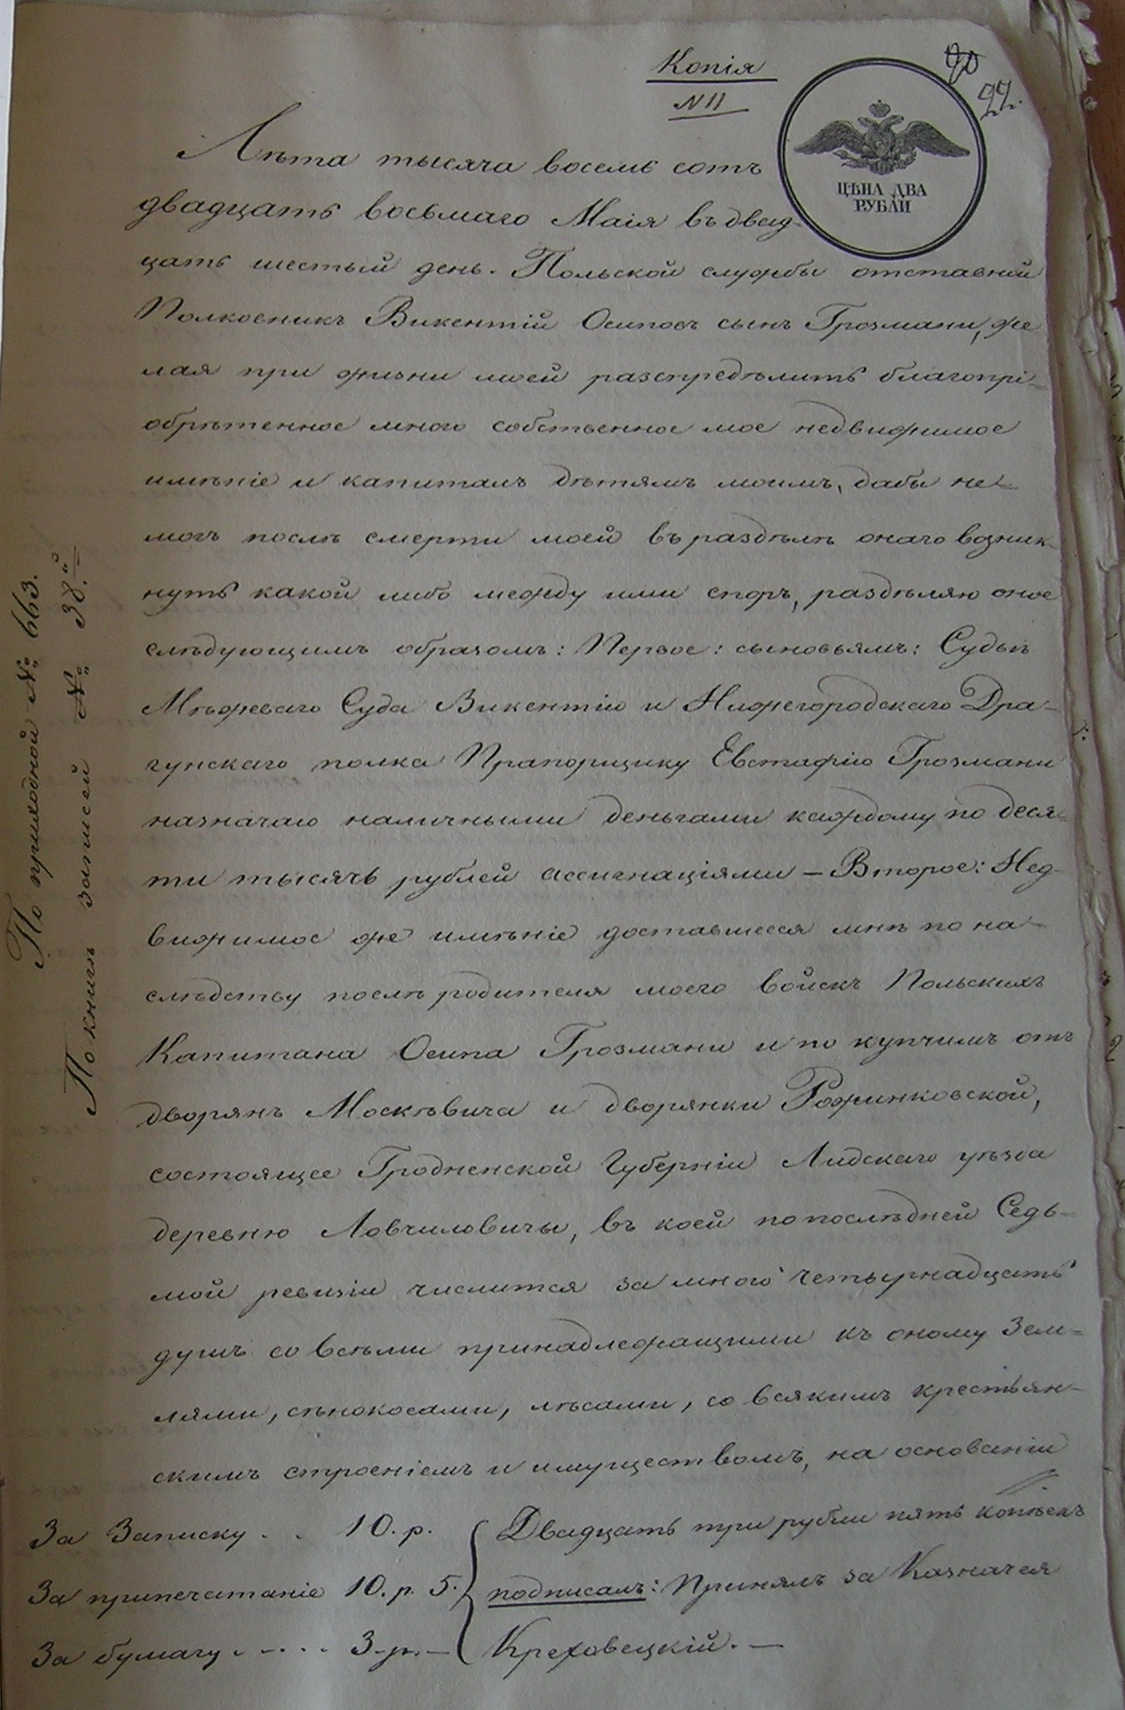 Копія
N 11
90
92.
ЦѢНА ДВА
РУБЛИ
Лѣта тысяча восемь сотъ
двадцать восьмаго Маія въ двад-
цать шестый день. Польской службы отставной
Полковникъ Викентій Осиповъ сынъ Грозмани, же
лая при жизни моей распредѣлить благопрі-
обрѣтенное мною собственное мое недвижимое
имѣніе и капиталъ дѣтямъ моимъ, дабы не-
могъ послѣ смерти моей въ раздѣлѣ онаго возник-
нуть какой либо между ими споръ, раздѣляю оное
слѣдующимъ образомъ: Первое: сыновьямъ: Судьѣ
Мѣжеваго Суда Викентію и Нижегородскаго Дра-
гунскаго полка Прапорщику Евстафію Грозмани
назначаю наличными деньгами каждому по деся-
ти тысячь рублей ассигнаціями — Второе: Нед-
вижимое же имѣніе доставшееся мнѣ по на-
слѣдству послѣ родителя моего войскъ Польскихъ
Капитана Осипа Грозмани и по купчимъ отъ
дворянъ Москѣвича и дворянки Рожинковской,
состоящее Гродненской Губерніи Лидскаго уѣзда
деревню Ловчиловичи, въ коей по послѣдней Седь-
мой ревизіи числится за мною четырнадцать
душъ со всѣми принадлежащими къ оному Зем-
лями, сѣнокосами, лѣсами, со всякимъ крестьян-
скимъ строеніемъ и имуществомъ, на основаніи
За Записку . . 10. р.
За припечатаніе 10. р. 5.
За бумагу . - . . . 3. р. —
Двадцать три рубли пять копѣекъ
подписалъ: Принялъ за Казначея
Креховецкій. —
По приходной № 663.
По книгѣ записей № 38.й